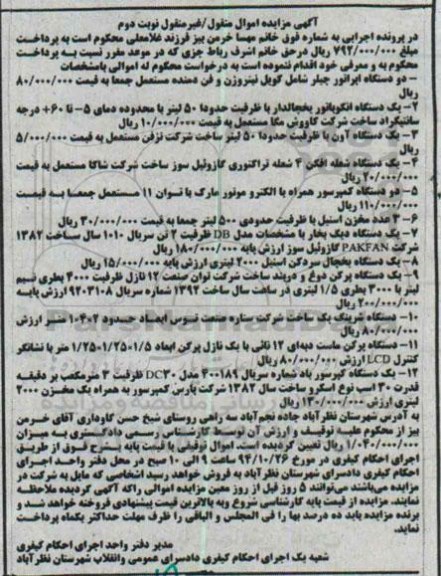 آگهی مزایده اموال منقول/غیرمنقول نوبت دوم
در پرونده اجرایی به شماره فوق خانم مهسا خرمن بیز فرزند غلامعلی محکوم است به پرداخت
مبلغ ۷۹۲/۰۰۰/۰۰۰ ریال درحق خانم اشرف رباط جزی که در موعد مقرر نسبت به پرداخت
محکوم به و معرفی خود اقدام ننموده است به درخواست محکوم له اموالی بامشخصات
- دو دستگاه ایراتور چیلر شامل کویل نیتروژن و فن دمنده مستعمل جمعا به قیمت ۸۰/۰۰۰/۰۰۰
ریال
۲- یک دستگاه انکوباتور یخچالدار با ظرفیت حدودا ۵۰ لیتر با محدوده دمای ۵- تا ۶۰+ درجه
سانتیگراد ساخت شرکت کاووش مگا مستعمل به قیمت ۱۰/۰۰۰/۰۰۰ ریال
۳- یک دستگاه آون با ظرفیت حدودا ۵۰ لیتر ساخت شرکت تزفن مستعمل به قیمت ۵/۰۰۰/۰۰۰
ریال
۴- یک دستگاه شعله افکن ۴ شعله تراکتوری گازوئیل سوز ساخت شرکت شاکا مستعمل به قیمت
۲۰/۰۰۰/۰۰۰ ریال
۵- دو دستگاه کمپرسور همراه با الکترو موتور مارک با توان ۱۱ مستعمل جمعا به قیمت
۱۱۰/۰۰۰/۰۰۰ ریال
۶- ۳ عدد مخزن استیل با ظرفیت حدودی ۵۰۰ لیتر جمعا به قیمت ۳۰/۰۰۰/۰۰۰ ریال
۷- یک دستگاه دیگ بخار با مشخصات مدل DB ظرفیت ۲ تن سریال ۱۰۱۰ سال ساخت ۱۳۸۲
شرکت PAKFAN گازوئیل سوز ارزش پایه ۱۸۰/۰۰۰/۰۰۰ ریال
۸- یک دستگاه یخچال سردکن استیل ۲۰۰۰ لیتری ارزش پایه ۱۵/۰۰۰/۰۰۰ ریال
۹- یک دستگاه پرکن دوغ و دربند ساخت شرکت توان صنعت ۱۲ نازل ظرفیت ۴۰۰۰ بطری نیم
لیتر با ۳۰۰۰ بطری ۱/۵ لیتری در ساعت سال ساخت ۱۳۹۲ شماره سریال ۹۲۰۳۱۰۸ ارزش پایه
۲۰۰/۰۰۰/۰۰۰ ریال
۱۰- دستگاه شرینگ پک ساخت شرکت ستاره صنعت نیوس ابعاد حدود ۲*۴*۱۰ متر ارزش
۸۰/۰۰۰/۰۰۰ ریال
۱۱- دستگاه پرکن ماست دبه‌ای ۱۲ تائی با یک نازل پرکن ابعاد ۱/۵*۱/۲۵*۱/۲۵ متر با نشانگر
کنترل LCD ارزش ۸۰/۰۰۰/۰۰۰ ریال
۱۲- یک دستگاه کمپرسور باد شماره سریال ۴۰۰۱۸۹ مدل DC۳۰ ظرفیت ۳ مترمکعب بر دقیقه
قدرت ۳۰ اسب نوع اسکرو ساخت سال ۱۳۸۲ شرکت پارس کمپرسور به همراه یک مخزن ۲۰۰۰
لیتری ارزش ۱۳۰/۰۰۰/۰۰۰ ریال
به آدرس شهرستان نظرآباد جاده نجم‌آباد سه راهی روستای شیخ حسن گاوداری آقای خرمن
بیز از محکوم علیه توقیف و ارزش آن توسط کارشناس رسمی دادگستری به میزان
۱/۰۴۰/۰۰۰/۰۰۰ ریال تعیین گردیده است. اموال توقیفی با قیمت پایه بشرح فوق از طریق
اجرای احکام کیفری در مورخ ۹۴/۱۰/۲۶ ساعت ۹ الی ۱۰ صبح در محل دفتر واحد اجرای
احکام کیفری دادسرای شهرستان نظرآباد به فروش خواهد رسید اشخاصی که مایل به شرکت در
مزایده می‌باشند می‌توانند ۵ روز قبل از روز معین مزایده اموالی راکه آگهی گردیده ملاحظه
نمایند. مزایده از قیمت پایه کارشناسی شروع وبه بالاترین قیمت پیشنهادی فروخته خواهد شد و
برنده مزایده باید ده درصد بها را فی المجلس و الباقی را ظرف مهلت حداکثر یکماه پرداخت
نماید.
مدیر دفتر واحد اجرای احکام کیفری
شعبه یک اجرای احکام کیفری دادسرای عمومی وانقلاب شهرستان نظرآباد